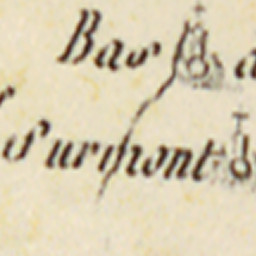 Bas
Surmont